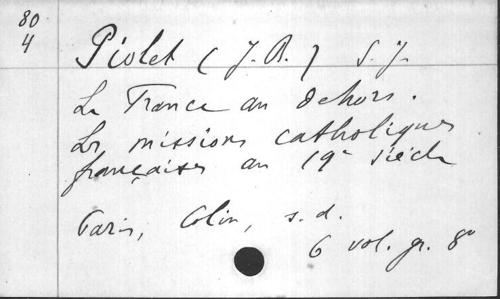 80
4
Piolet (J. B.) S. J.
La France au dehors.
Les missions catholiques
françaises au 19e siècle
Paris, Colin, s. d.
6 vol. gr. 8°